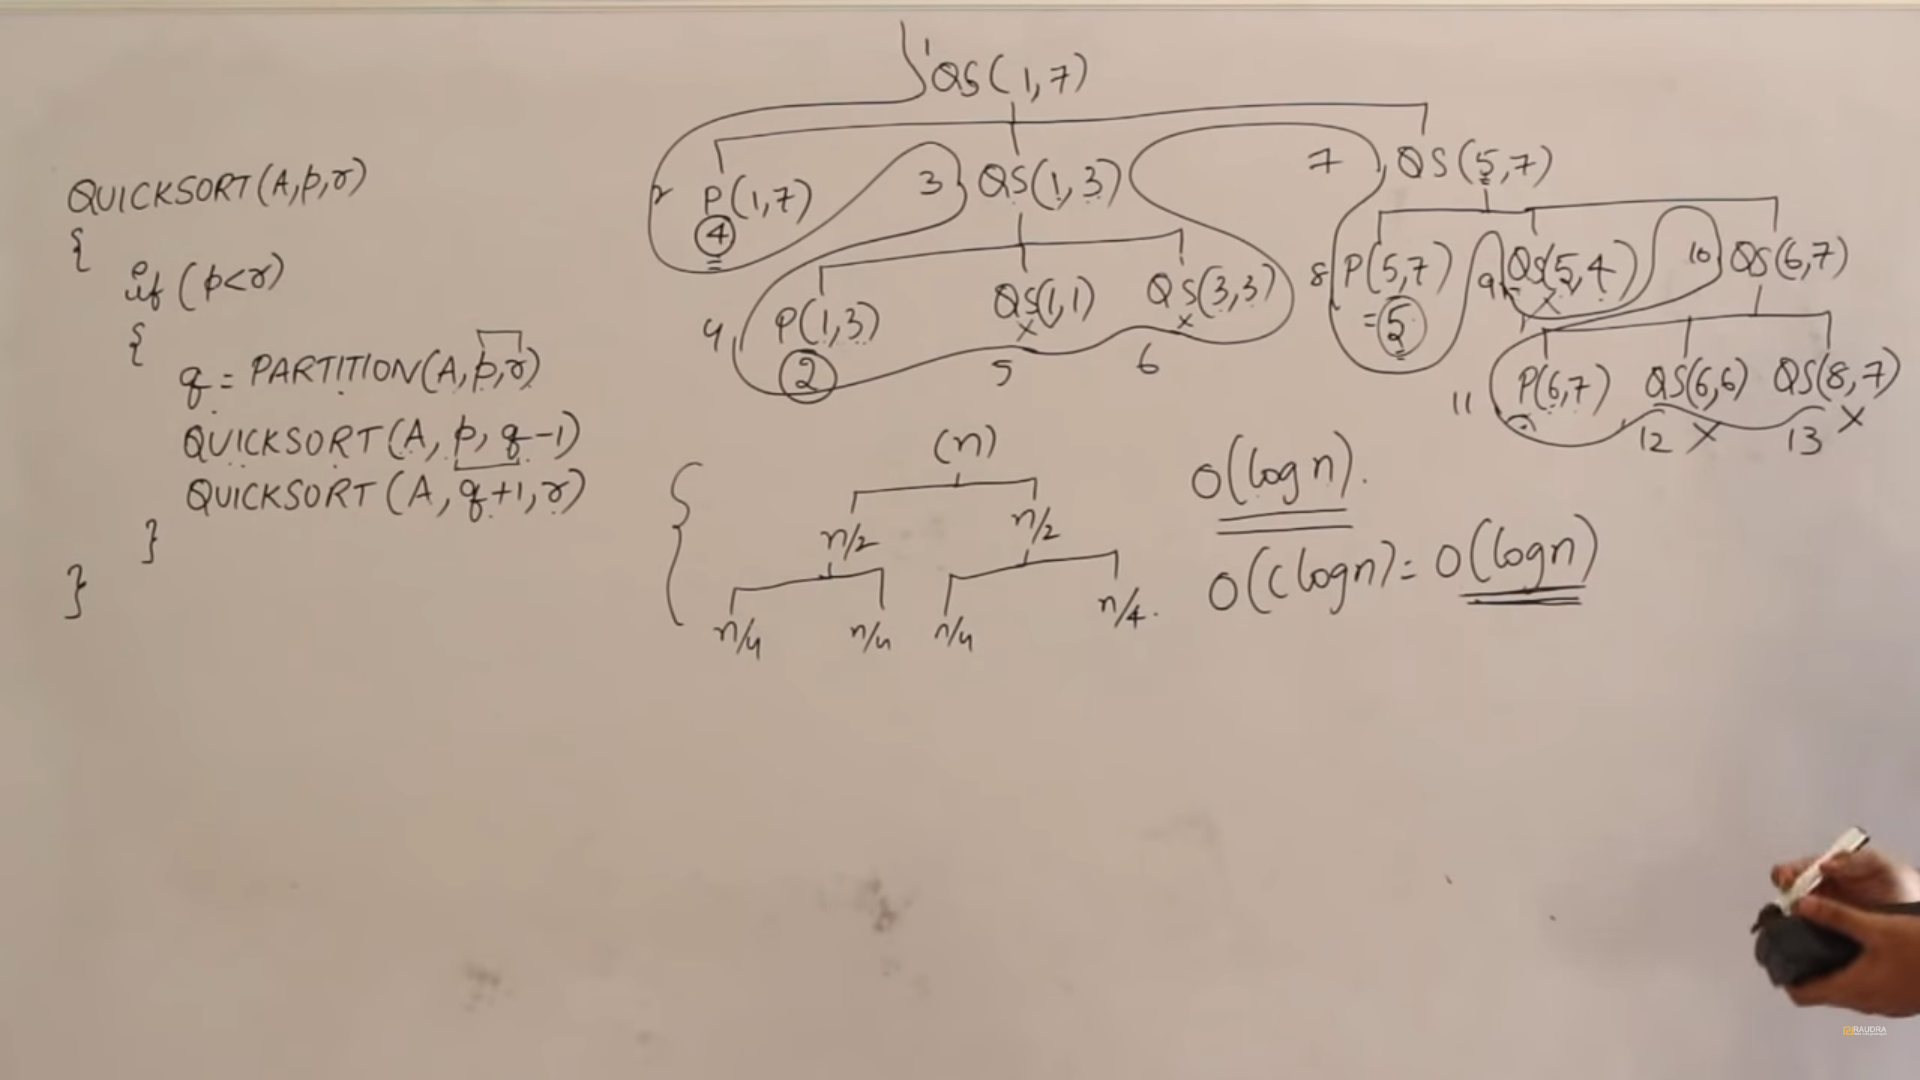 QUICKSORT(A,p,r)
{
if (p<r)
{
q = PARTITION(A,p,r)
QUICKSORT(A, p, q-1)
QUICKSORT(A, q+1, r)
}
}
1 QS(1,7)
2 P(1,7) 3 QS(1,3) 7 QS(5,7)
4
4 P(1,3) QS(1,1) QS(3,3) 8 P(5,7) 9 QS(5,4) 10 QS(6,7)
2 x x = 5 x
5 6
11 P(6,7) QS(6,6) QS(8,7)
12 x 13 x
(n)
n/2 n/2
n/4 n/4 n/4 n/4.
O(logn).
O(Clogn) = O(logn)
RAUDRA